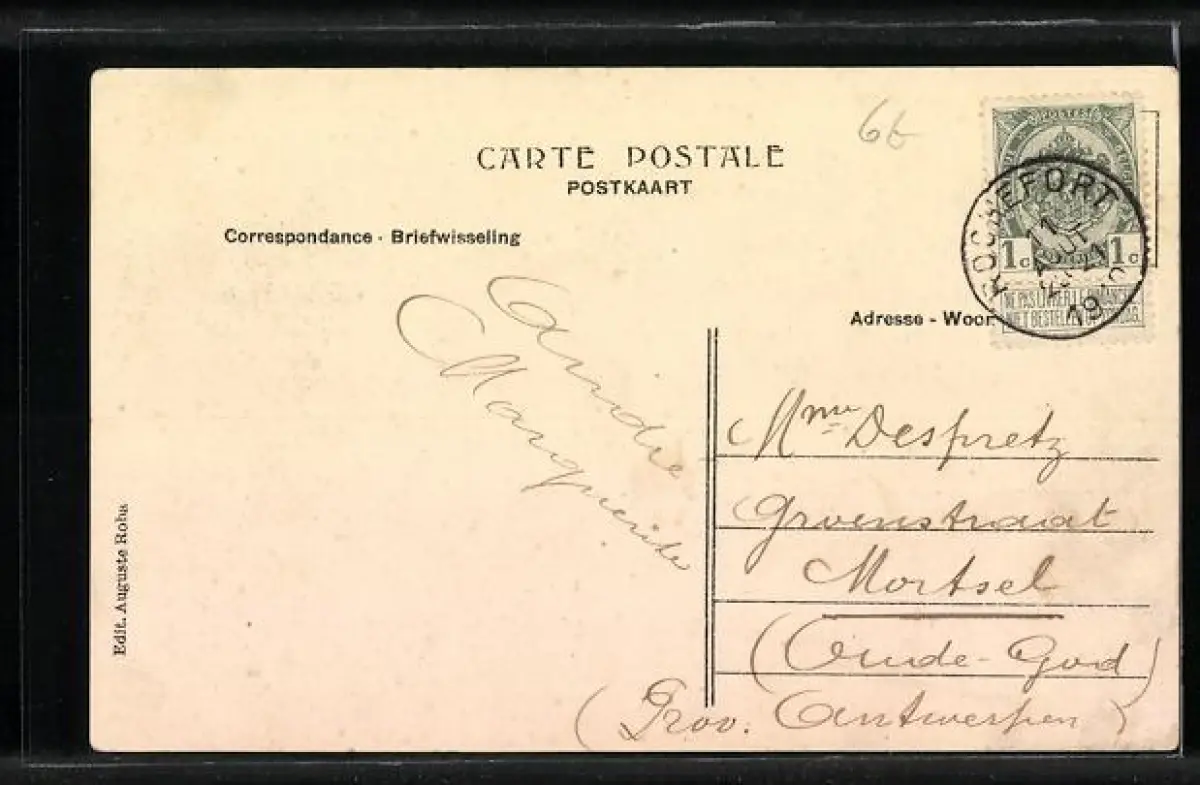 6 €
CARTE POSTALE
POSTKAART
Correspondance - Briefwisseling
POSTES
1c 1c
ROCHEFORT
11
AOUT
21
NE PAS LIVRER LE DIMANCHE
NIET BESTELLEN OP ZONDAG.
Adresse - Woon
André
Marguerite
Mme Despretz
Groenstraat
Mortsel
(Oude-God)
(Prov. Antwerpen)
Edit. Auguste Robs